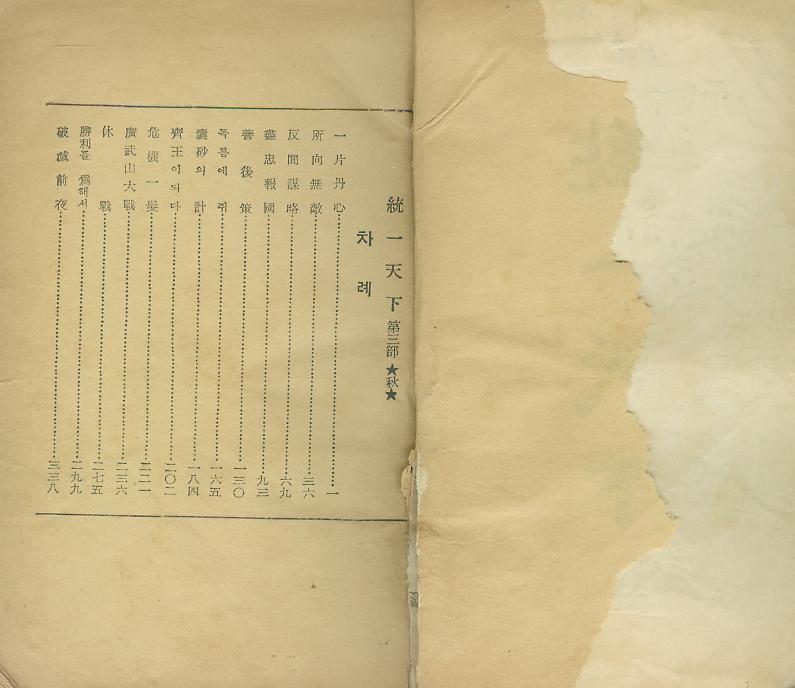 統一天下 第三部 ★秋★
차례
一片丹心 一
所向無敵 三六
反間謀略 六九
盡忠報國 九三
善後策 一三〇
독름에 쥐 一六五
囊砂의 計 一八四
齊王이되다 二〇二
危機一髮 二二一
廣武山大戰 二三六
休戰 二七五
勝利를 爲해서 二九九
破滅前夜 三三八